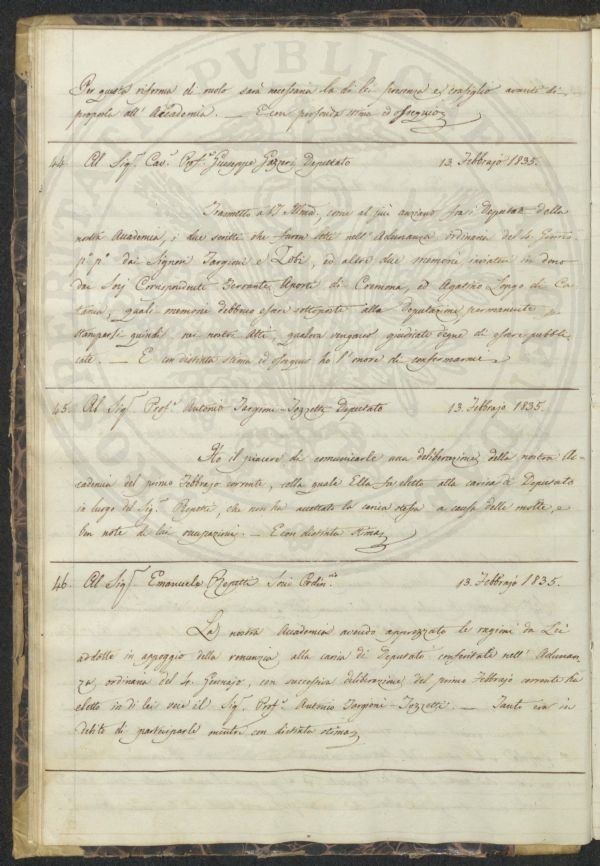 Per questa riforma di ruolo sarà necessaria la di lei presenza e consiglio avanti di
proporla all' Accademia. — E con profonda stima ed ossequio
44. Al Sig.r Cav.r Prof.e Giuseppe Gazzeri Deputato 13. Febbrajo 1835.
Trasmetto a VS Illma, come al più anziano fra i Deputati della
nostra Accademia, i due scritti che furon letti nell' Adunanza ordinaria del 4. Genn.o
p.o p.o dai Signori Targioni e Tobi, ed altre due memorie inviate in dono
dai Soci Corrispondenti Ferrante Aporti di Cremona, ed Agatino Longo di Ca-
tania; quali memorie debbono essere sottoposte alla Deputazione permanente, e
stamparsi quindi nei nostri Atti, qualora vengano giudicate degne di esser pubbli-
cate. — E con distinta stima ed ossequio ho l' onore di confermarmi
45. Al Sig.r Prof.e Antonio Targioni-Tozzetti Deputato 13. Febbrajo 1835.
Ho il piacere di comunicarle una deliberazione della nostra Ac-
cademia del primo Febbrajo corrente, colla quale Ella fu eletto alla carica di Deputato
in luogo del Sig.r Repetti, che non ha accettato la carica stessa a causa delle molte, e
ben note di lui occupazioni. — E con distinta stima
46. Al Sig.r Emanuele Repetti Socio Ordin.rio 13. Febbrajo 1835.
La nostra Accademia avendo apprezzato le ragioni da Lei
addotte in appoggio della renunzia alla carica di Deputato conferitale nell' Adunan-
za ordinaria del 4. Gennajo, con successiva deliberazione del primo Febbrajo corrente ha
eletto in di lei vece il Sig.r Prof.e Antonio Targioni-Tozzetti. — Tanto era in
debito di parteciparle mentre con distinta stima